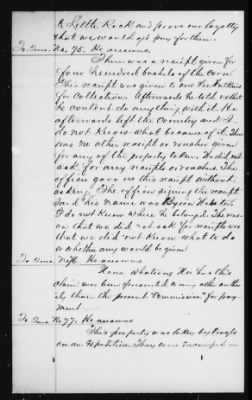 to Little Rock and prove our loyalty
that we would get pay for them.
To Ques. No. 75. He answers
There was a receipt given for
four hundred bushels of the corn
This receipt was given to one
for Collection Afterwards he told me that
he could not do anything with it. He
afterwards left the Country and I
do not know what became of it. There
was no other receipt or voucher given
for any of the property taken. We did not
ask for any receipts or vouchers. The
officer gave us this receipt without
asking. The officer signing the receipt
said his name was
I do not know where he belonged. The reason
that we did not ask for receipts was
that we did not know what to do
or whether any would be given
To Ques. No. 76. He answers
None whatever Nor has this
claim ever been presented to any other author
ity than the present "Commission" for pay
ment
To Ques. No. 77. He answers
This property was taken by troops
on an Expedition They were encamped in